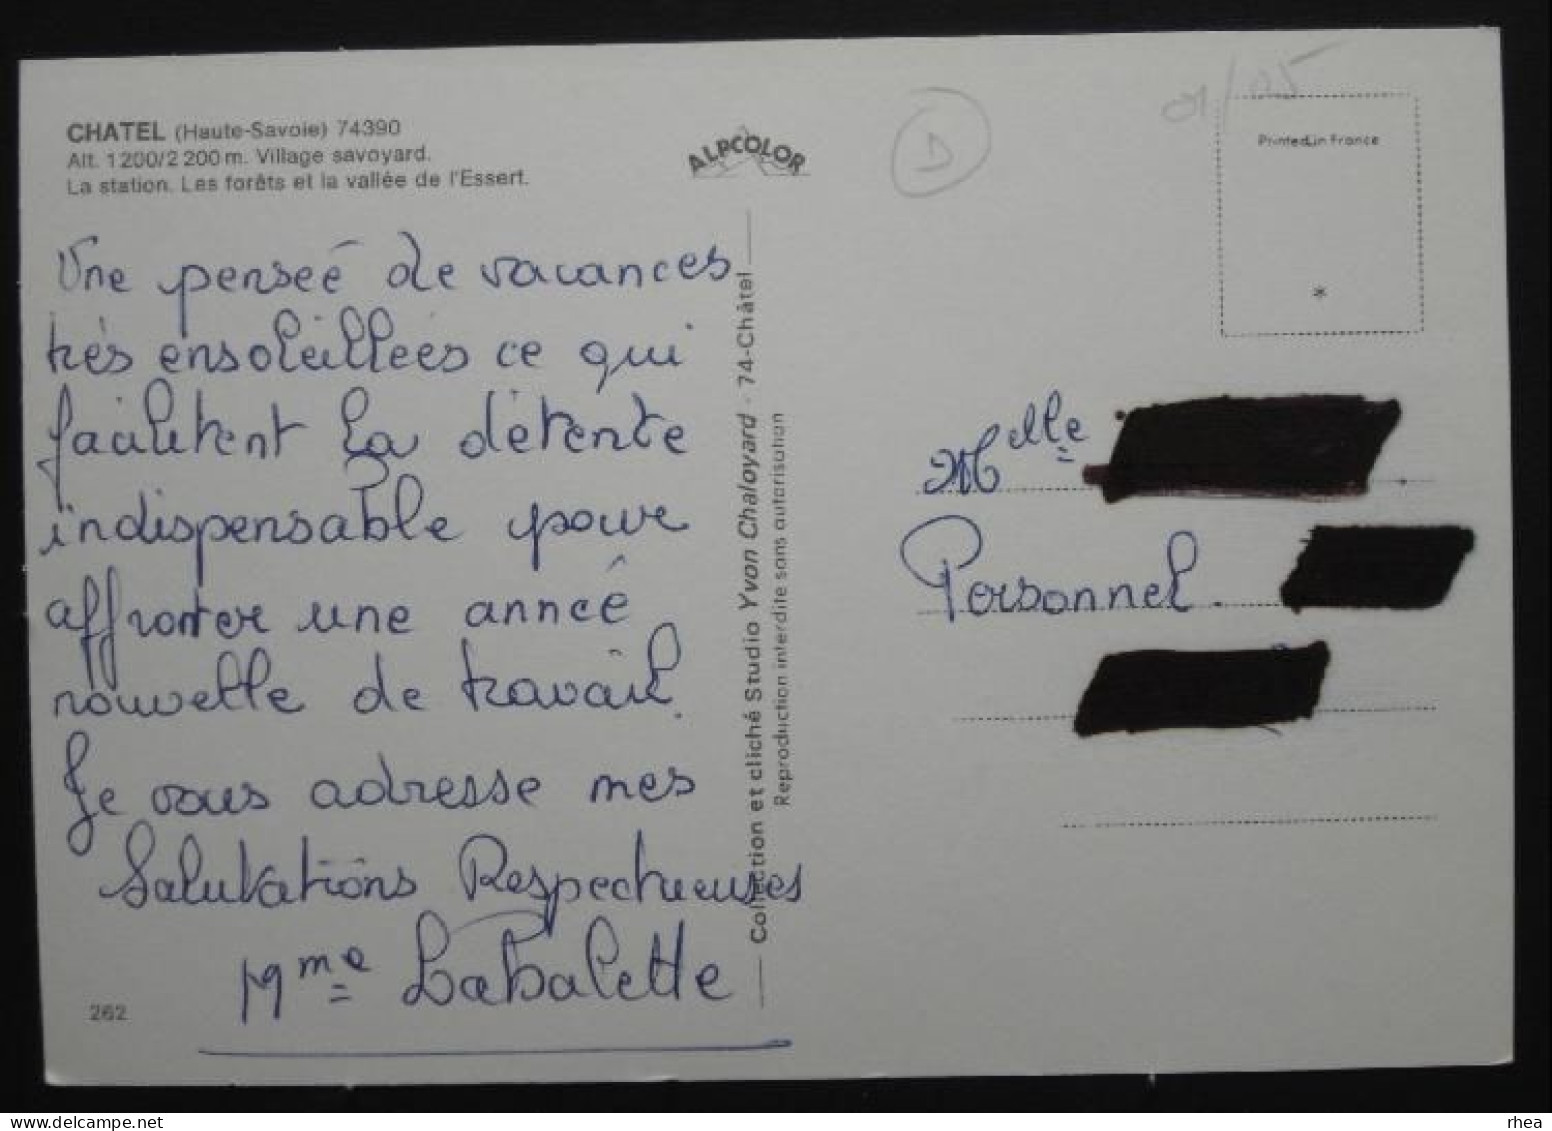 CHATEL (Haute-Savoie) 74390
Alt. 1 200/2 200 m. Village savoyard.
La station. Les forêts et la vallée de l'Essert.
ALPCOLOR
D
01/05
Printed in France
*
Une penseé de vacances
très ensoleillées ce qui
facilitent la détente
indispensable pour
affronter une anneé
nouvelle de travail.
Je vous adresse mes
Salutations Respectueuses
Mme Labalette
262
Collection et cliché Studio Yvon Chaloyard - 74-Châtel
Reproduction interdite sans autorisation
Melle
Personnel.
www.delcampe.net
rhea